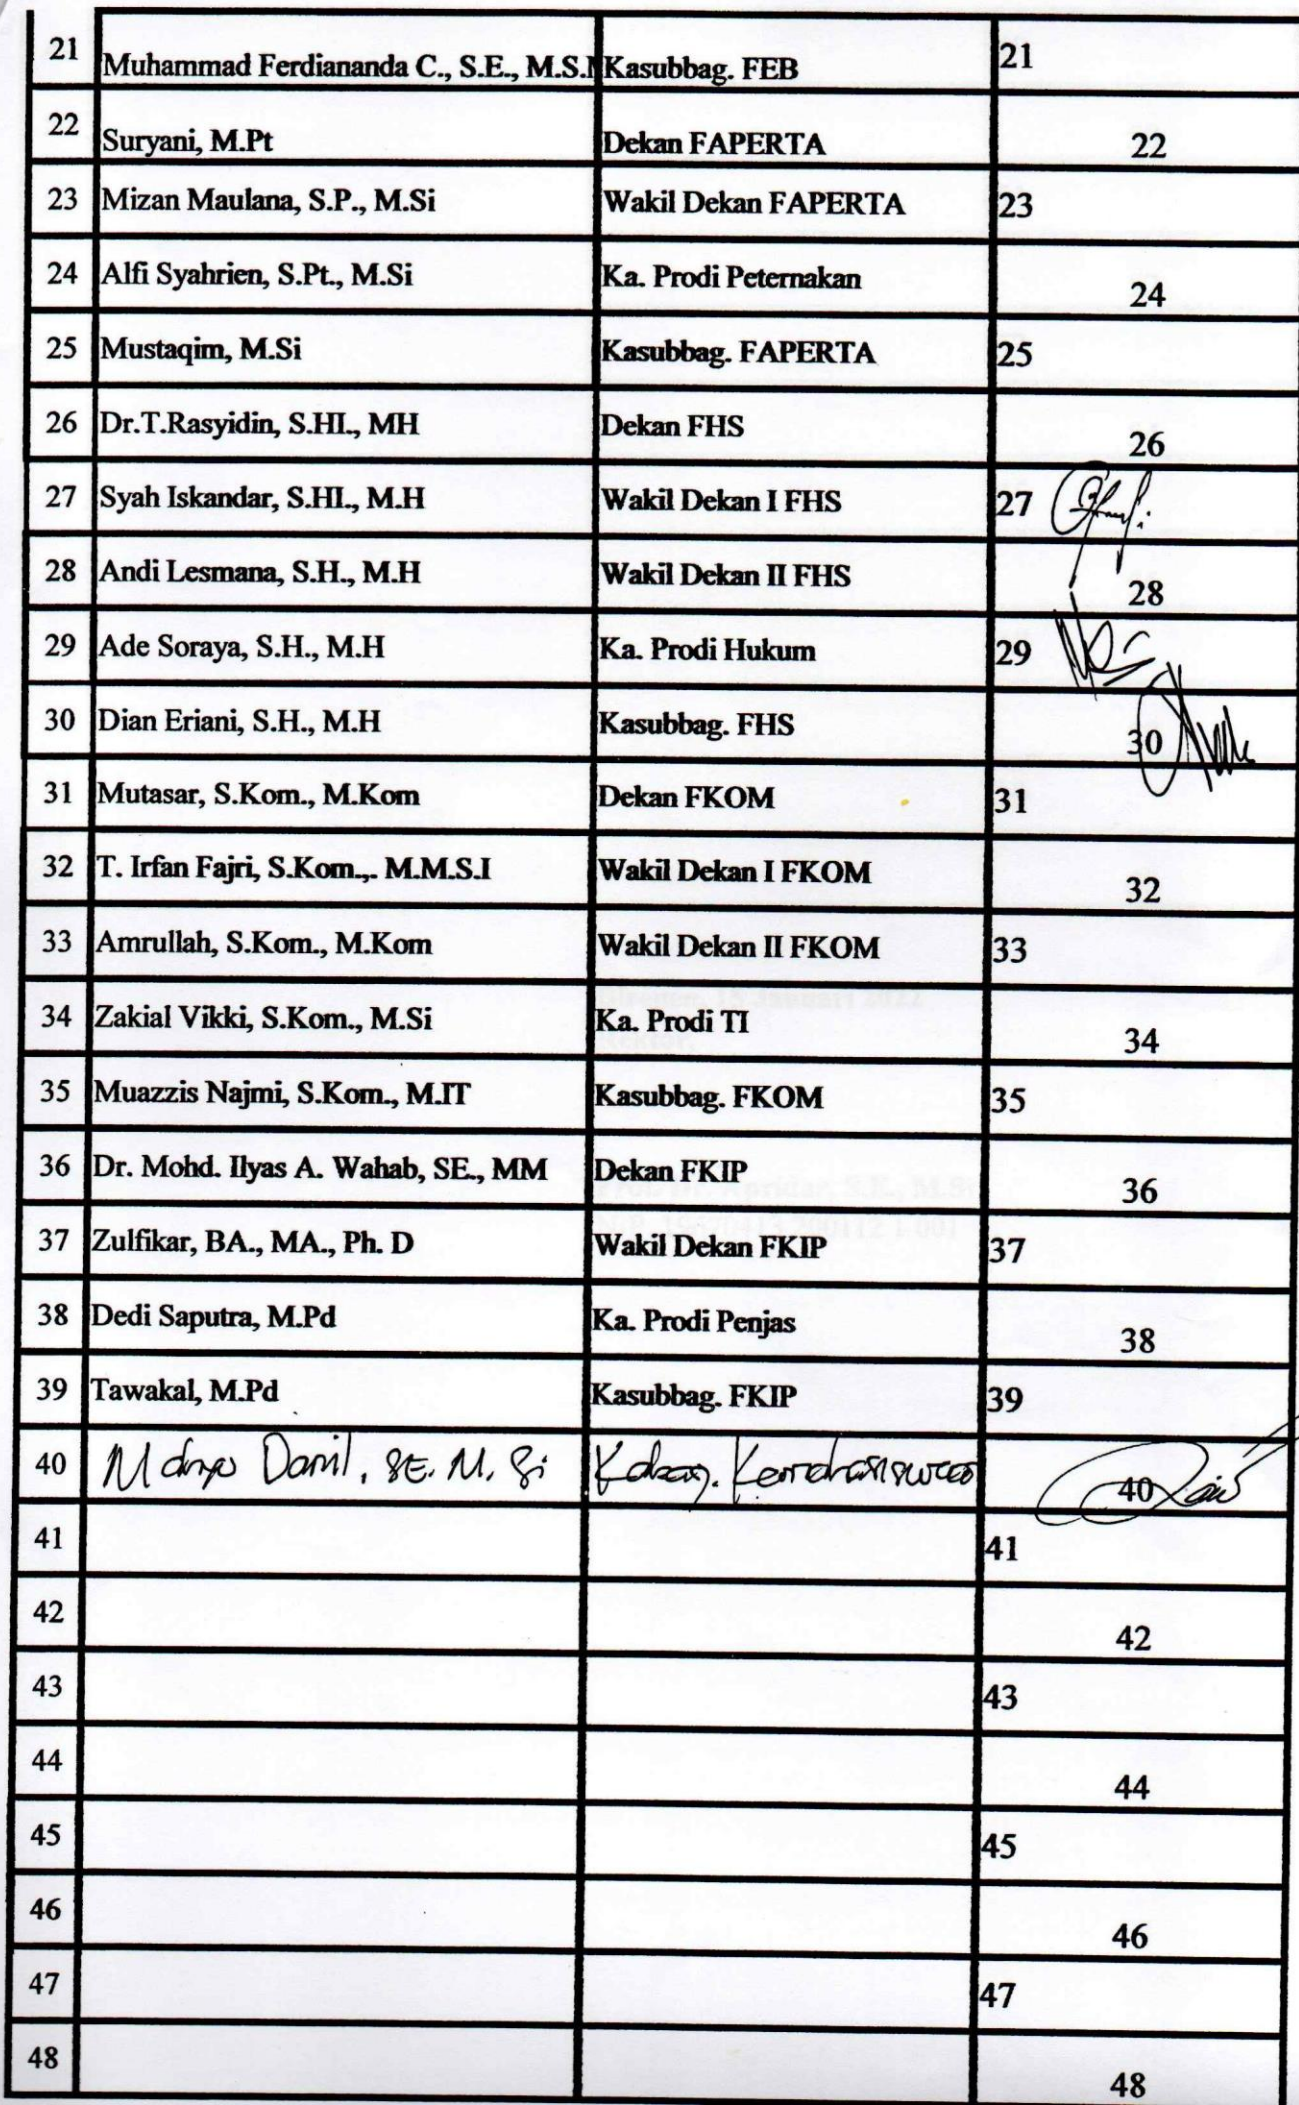 21 Muhammad Ferdiananda C., S.E., M.S. Kasubbag. FEB 21
22 Suryani, M.Pt Dekan FAPERTA 22
23 Mizan Maulana, S.P., M.Si Wakil Dekan FAPERTA 23
24 Alfi Syahrien, S.Pt., M.Si Ka. Prodi Peternakan 24
25 Mustaqim, M.Si Kasubbag. FAPERTA 25
26 Dr.T.Rasyidin, S.HI., MH Dekan FHS 26
27 Syah Iskandar, S.HI., M.H Wakil Dekan I FHS 27
28 Andi Lesmana, S.H., M.H Wakil Dekan II FHS 28
29 Ade Soraya, S.H., M.H Ka. Prodi Hukum 29
30 Dian Eriani, S.H., M.H Kasubbag. FHS 30
31 Mutasar, S.Kom., M.Kom Dekan FKOM 31
32 T. Irfan Fajri, S.Kom.,. M.M.S.I Wakil Dekan I FKOM 32
33 Amrullah, S.Kom., M.Kom Wakil Dekan II FKOM 33
34 Zakial Vikki, S.Kom., M.Si Ka. Prodi TI 34
35 Muazzis Najmi, S.Kom., M.IT Kasubbag. FKOM 35
36 Dr. Mohd. Ilyas A. Wahab, SE., MM Dekan FKIP 36
37 Zulfikar, BA., MA., Ph. D Wakil Dekan FKIP 37
38 Dedi Saputra, M.Pd Ka. Prodi Penjas 38
39 Tawakal, M.Pd Kasubbag. FKIP 39
40 Danil, SE. M. Si 40
41 41
42 42
43 43
44 44
45 45
46 46
47 47
48 48